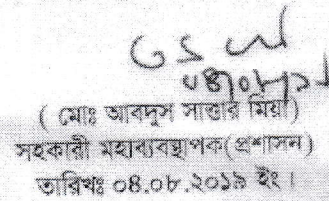 ০৪/০৮/১৯
( মোঃ আবদুস সাত্তার মিয়া)
সহকারী মহাব্যবস্থাপক(প্রশাসন)
তারিখঃ ০৪.০৮.২০১৯ ইং।